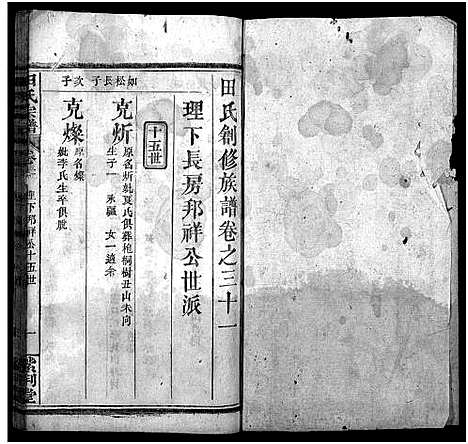 田氏創修族譜卷之三十一
理下長房邦祥公世派
十五世
如松長子
克炘
原名炘娶夏氏俱葬枹桐樹丑山未向
生子一 承疆 女一適余
次子
克燦
原名燦
娶李氏生卒俱脫
田氏宗譜
理下邦祥公十五世
一
紫荆堂